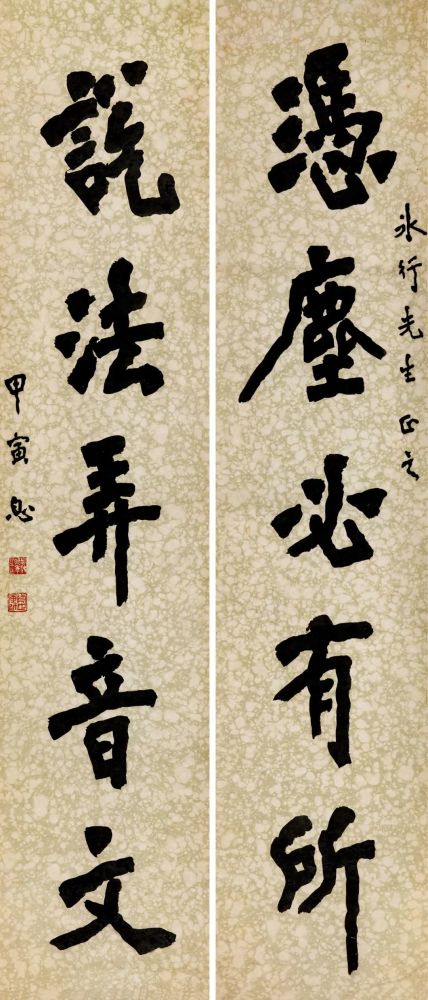 冰行先生正之
憑塵必有所
說法弄音文
甲寅